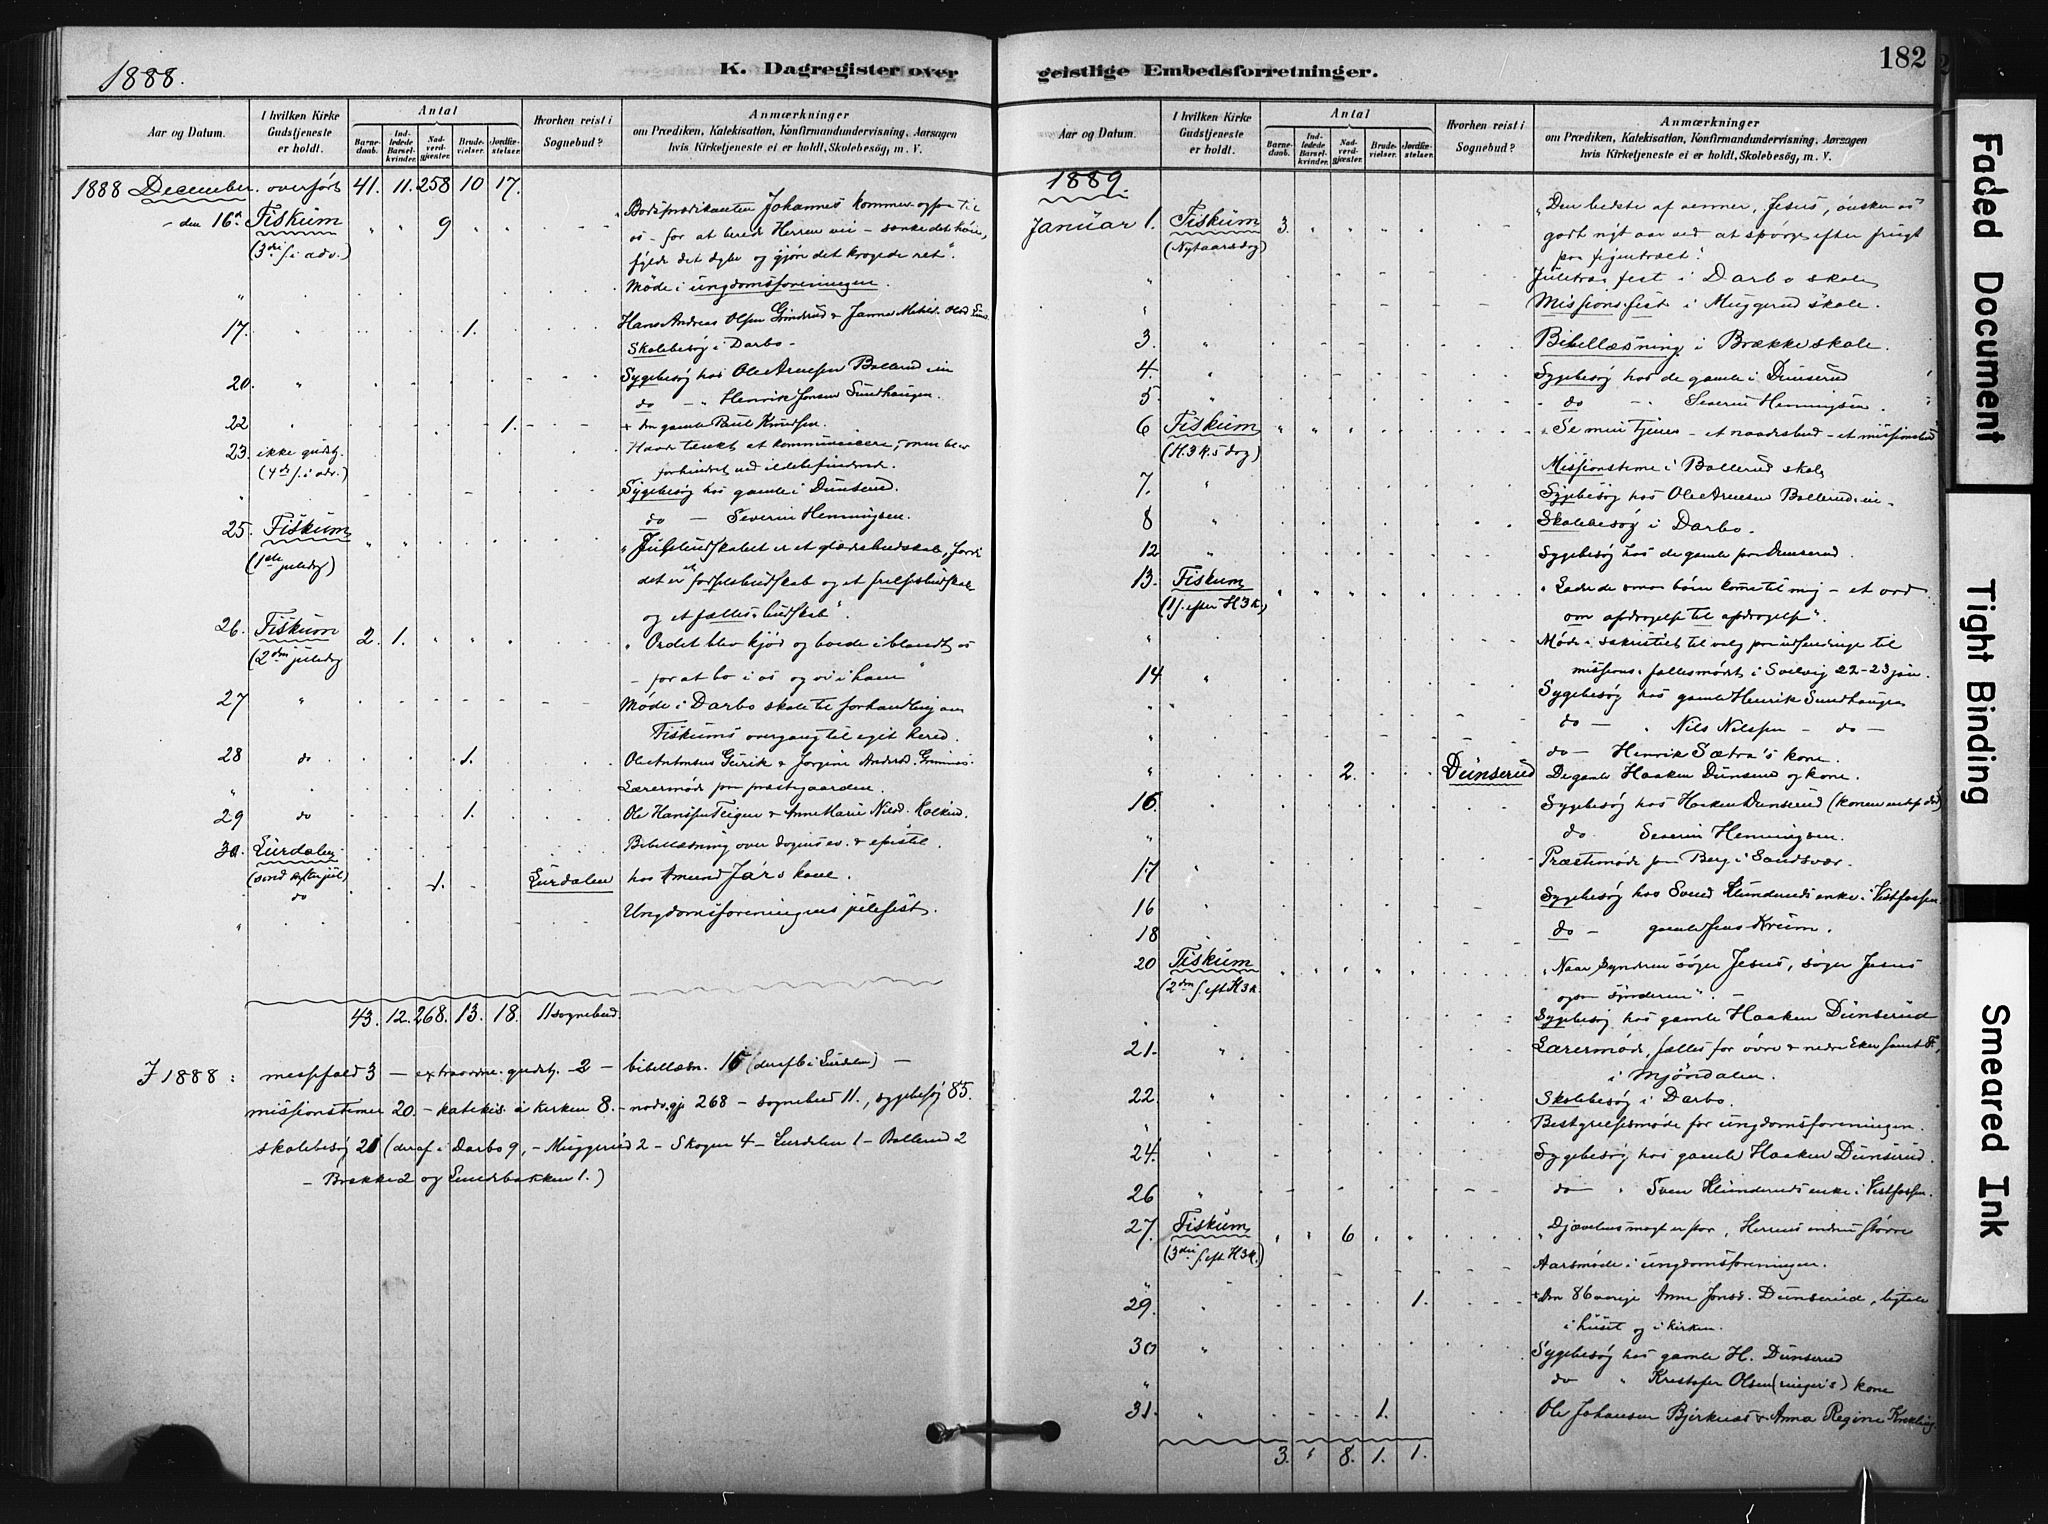 1888.
K. Dagregister over
Aar og Datum.
I hvilken Kirke Gudstjeneste er holdt.
Antal
Barnedaab.
Indledede Barselkvinder.
Nadverdgjæster.
Brudevielser.
Jordfæstelser.
Hvorhen reist i Sognebud?
Anmærkninger
om Prædiken, Katekisation, Konfirmandundervisning, Aarsagen
hvis Kirketjeneste ei er holdt, Skolebesög, m. V.
1888 December. overført 41. 11. 258 10 17.
- den 16de Fiskum " " 9 " " "Bodsprædikanten Johannes kommer ogsaa til
(3die s. i adv.) os - for at berede Herren vei - sænke det høie,
fylde det dybe og gjøre det krogede ret".
" Møde i ungdomsforeningen.
17. " 1. Hans Andreas Olsen
Skolebesøg i Darbo -
20 " Sygebesøg hos Ole Arnesen Bollerud
do - " Henrik Jonsen Sundhaugen.
22 " 1. + den gamle Paul Knudsen.
23. ikke gudstj. Havde tænkt at kommunicere, men blev
(4de s. i adv.) forhindret ved ildebefindende.
" Sygebesøg hos gamle i Dunserud.
do - Severin Henningsen.
25. Fiskum " " "Julebudskabet er et glædesbudskab, fordi
(1ste juledag) det er et fødselsbudskab og et frelsesbudskab
og et fælles-budskab".
26. Fiskum 2. 1. " " " "Ordet blev kjød og boede iblandt os
(2den juledag - for at bo i os og vi i ham"
27 " Møde i Darbo skole til forhandling om
Fiskums overgang til eget herred.
28 do 1. Ole Antonsen & Jorgine Andersd.
" Lærermøde paa præstegaarden.
29 do 1. Ole Hansen Teigen & Anne Marie Nilsd.
30. Lurdalen Bibellæsning over dagens ev. & epistel.
(sønd. efter jul) do 1. Lurdalen hos Amund Jars kone.
" Ungdomsforeningens julefest.
43. 12. 268. 13. 18. 11 sognebud.
I 1888: messefald 3 - extraordn. gudstj. 2 - bibellæsn. 15 (deraf 6 i Lurdalen) -
missionstimer 20. - katekis. i kirken 8. - nadv.gj. 268 - sognebud 11., sygebesøg 85.
skolebesøg 21 (deraf i Darbo 9, - Muggerud 2 - Skogen 4 - Lurdalen 1 - Bollerud 2
- Brække 2 og Lundsbakken 1.)
geistlige Embedsforretninger.
182
Aar og Datum.
I hvilken Kirke Gudstjeneste er holdt.
Antal
Barnedaab.
Indledede Barselkvinder.
Nadverdgjæster.
Brudevielser.
Jordfæstelser.
Hvorhen reist i Sognebud?
Anmærkninger
om Prædiken, Katekisation, Konfirmandundervisning, Aarsagen
hvis Kirketjeneste ei er holdt, Skolebesög, m. V.
1889.
Januar 1. Fiskum 3. " " " " "Den bedste af venner, Jesus, ønsker os
(Nytaarsdag) godt nyt aar ved at spørge efter frugt
paa figentræet".
" Juletræfest i Darbo skole
" Missionsfest i Muggerud skole.
3. " Bibellæsning i Brække skole.
4. " Sygebesøg hos de gamle i Dunserud
5. " do - Severin Henningsen.
6 Fiskum " " " " " "Se min tjener - et naadesbud - et missionsbud
(H.3 K.s dag) Missionstime i Bollerud skole
7. " Sygebesøg hos Ole Arnesen Bollerud-
8 " Skolebesøg i Darbo.
12 " Sygebesøg hos de gamle paa Dunserud.
13. Fiskum " " " " " "Lad de smaa børn komme til mig - et ord
(1 s. efter H3K.) om opdragelse til opdragelse".
" Møde i sakristiet til valg paa udsendinge til
missions-fællesmødet i Svelvig 22-23 jan.
14 " Sygebesøg hos gamle Henrik Sundhaugen
" do - " Nils Nilsen - do -
" do - Henrik Sætra's kone.
" 2. Dunserud De gamle Haaken Dunserud og kone.
16. Sygebesøg hos Haaken Dunserud (konen netop død)
" do Severin Henningsen.
17 " Præstemøde paa Berg i Sandsvær.
16 " Sygebesøg hos Svend Klunderuds enke i Vestfossen
18 do - gamle Jens Krum.
20 Fiskum " " " " " "Naar synderen søger Jesus, søger Jesus
(2den s. eft. H3K. ogsaa synderen". -
Sygebesøg hos gamle Haaken Dunserud
21. " Lærermøde, fælles for øvre & nedre Eker samt F.,
i Mjøndalen.
22. " Skolebesøg i Darbo.
" Bestyrelsesmøde for ungdomsforeningen.
24. " Sygebesøg hos gamle Haaken Dunserud.
26 " do " Sven Klunderuds enke i Vestfossen.
27. Fiskum " " 6 " " "Djævelens magt er stor, Herrens endnu større
(3die s. eft. H3K.) Aarsmøde i ungdomsforeningen.
29. " 1. + den 86aarige Anne Jonsd. Dunserud, ligtale
i huset og i kirken.
30 " Sygebesøg hos gamle H. Dunserud
" do " Kristofer Olsen (ringer's) kone
31. " 1. Ole Johansen Bjerknæs & Anna Regine Krekling.
3. " 8. 1. 1.
Faded Document
Tight Binding
Smeared Ink